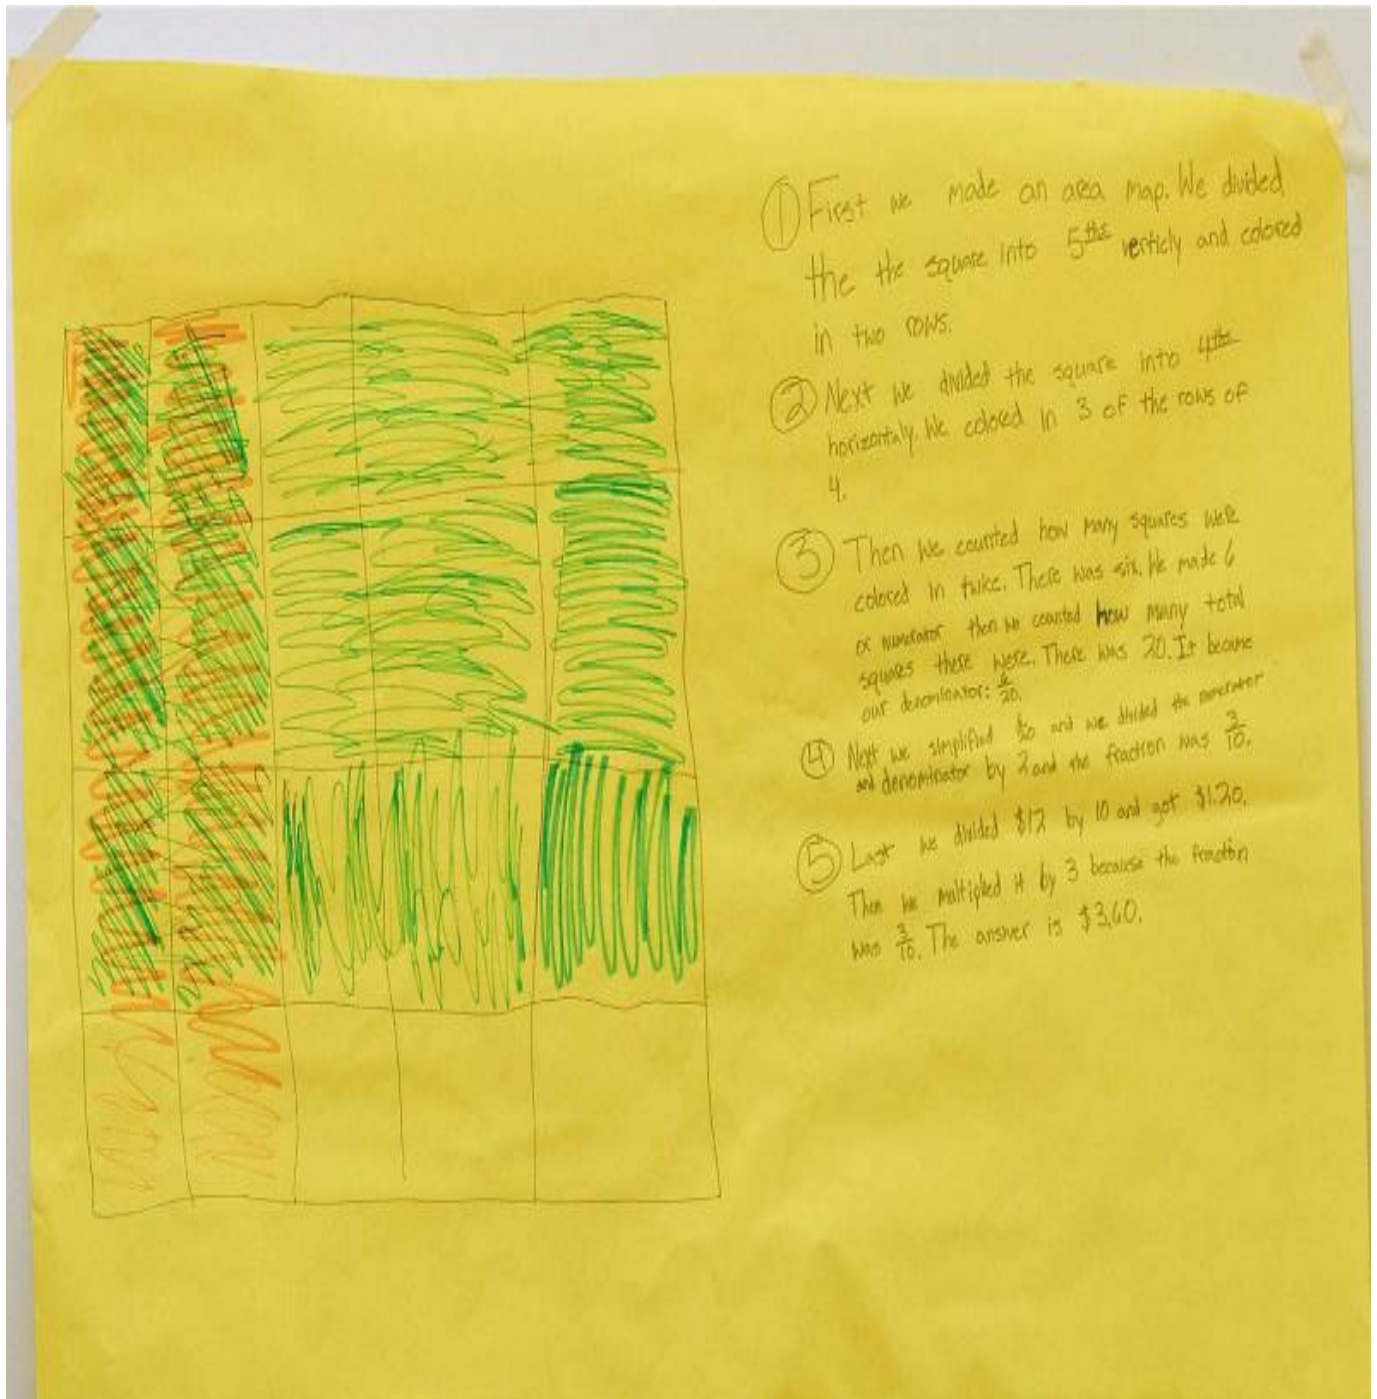 ① First we made an area map. We divided
the the square into 5ths verticly and colored
in two rows.
② Next we divided the square into 4ths
horizontaly. We colored in 3 of the rows of
4.
③ Then we counted how many squares were
colored in twice. There was six. We made 6
or numerator then we counted how many total
squares there were. There was 20. It became
our denominator: 6/20.
④ Next we simplified 6/20 and we divided the numerator
and denominator by 2 and the fraction was 3/10.
⑤ Last we divided $12 by 10 and got $1.20.
Then we multiplied it by 3 because the fraction
was 3/10. The answer is $3.60.